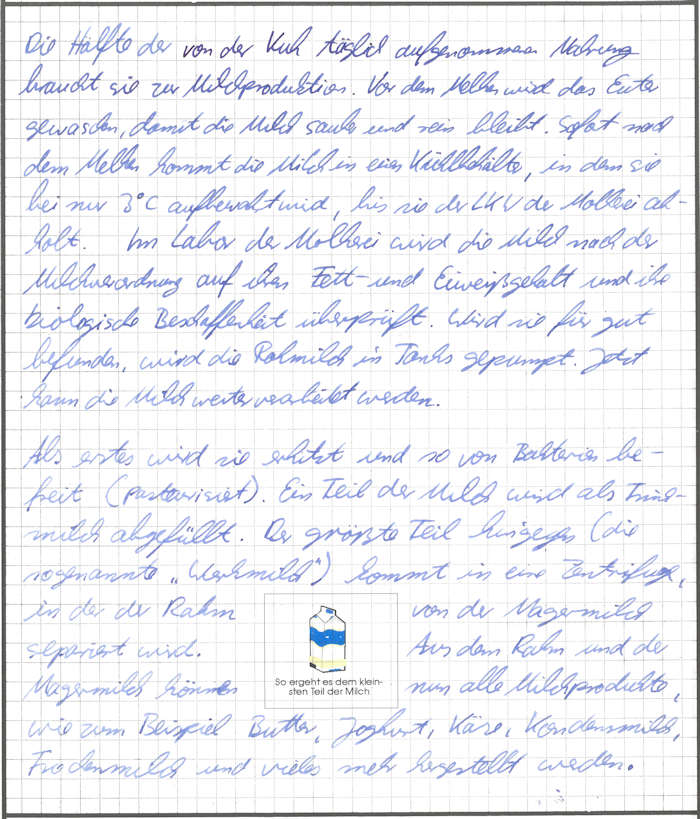 Die Hälfte der von der Kuh täglich aufgenommenen Nahrung
braucht sie zur Milchproduktion. Vor dem Melken wird das Euter
gewaschen, damit die Milch sauber und rein bleibt. Sofort nach
dem Melken kommt die Milch in einen Kühlbehälter, in dem sie
bei nur 3°C aufbewahrt wird, bis sie der LKW der Molkerei ab-
holt. Im Labor der Molkerei wird die Milch nach der
Milchverordnung auf ihren Fett- und Eiweißgehalt und ihre
biologische Beschaffenheit überprüft. Wird sie für gut
befunden, wird die Rohmilch in Tanks gepumpt. Jetzt
kann die Milch weiterverarbeitet werden.
Als erstes wird sie erhitzt und so von Bakterien be-
freit (pasteurisiert). Ein Teil der Milch wird als Trink-
milch abgefüllt. Der größte Teil hingegen (die
sogenannte „Werkmilch") kommt in eine Zentrifuge,
in der der Rahm von der Magermilch
separiert wird. Aus dem Rahm und der
Magermilch können nun alle Milchprodukte,
So ergeht es dem klein-
sten Teil der Milch
wie zum Beispiel Butter, Joghurt, Käse, Kondensmilch,
Trockenmilch und vieles mehr hergestellt werden.